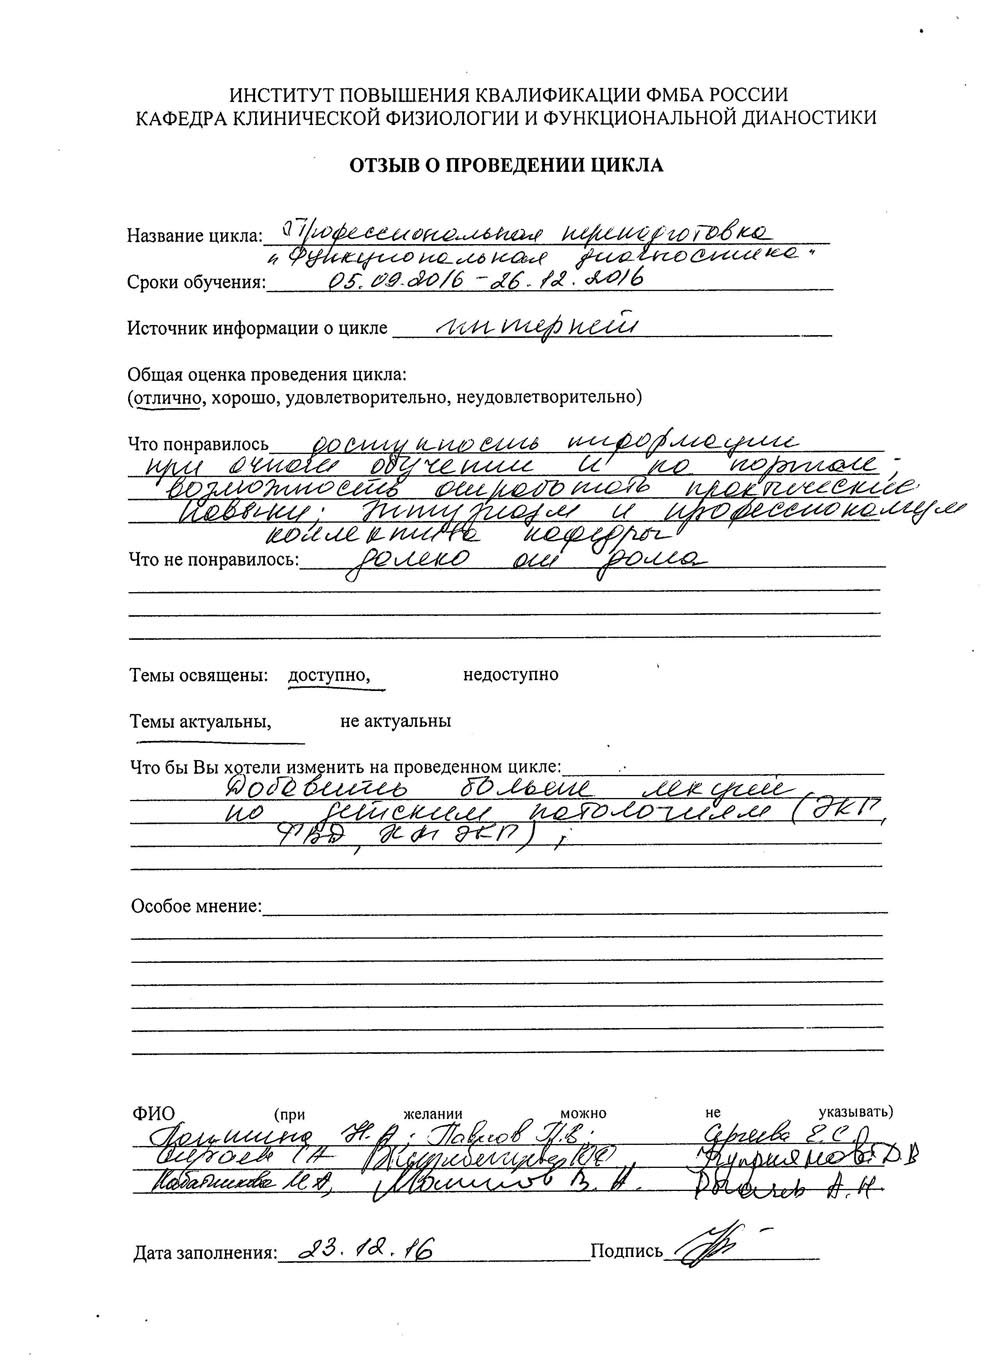 ИНСТИТУТ ПОВЫШЕНИЯ КВАЛИФИКАЦИИ ФМБА РОССИИ
КАФЕДРА КЛИНИЧЕСКОЙ ФИЗИОЛОГИИ И ФУНКЦИОНАЛЬНОЙ ДИАНОСТИКИ
ОТЗЫВ О ПРОВЕДЕНИИ ЦИКЛА
Название цикла: Профессиональная переподготовка
"Функциональная диагностика"
Сроки обучения: 05.09.2016 - 26.12.2016
Источник информации о цикле интернет
Общая оценка проведения цикла:
(отлично, хорошо, удовлетворительно, неудовлетворительно)
Что понравилось доступность информации
при очном обучении и на портале;
возможность отработать практические
навыки; энтузиазм и профессионализм
коллектива кафедры
Что не понравилось: далеко от дома
Темы освящены: доступно, недоступно
Темы актуальны, не актуальны
Что бы Вы хотели изменить на проведенном цикле:
Добавить больше лекций
по детским патологиям (ЭКГ,
ФВД, ХМ ЭКГ);
Особое мнение:
ФИО (при желании можно не указывать)
Н.А. Павлов П.В. Сергеева Е.С.
Куприянова Д.В
Н.А, В.Н. А.Н.
Дата заполнения: 23.12.16 Подпись